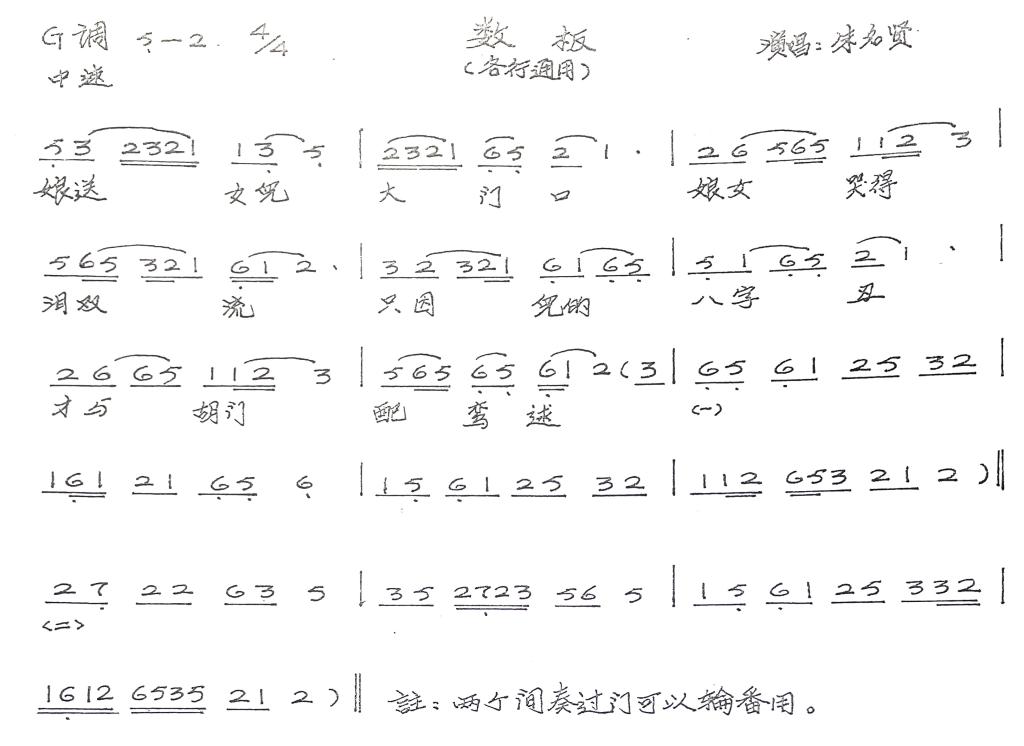 G调 5—2. 4/4 数板 演唱:朱名贤
中速 (各行通用)
53 2321 13 5 | 2321 65 2 1 · | 26 565 112 3 |
娘送 女儿 大 门 口 娘女 哭得
565 321 61 2 · | 32 321 61 65 | 51 65 2 1 · |
泪双 流 只因 儿的 八字 丑
26 65 112 3 | 565 65 61 2 (3 | 65 61 25 32 |
才与 胡门 配 鸾 逑 <一>
161 21 65 6 | 15 61 25 32 | 112 653 21 2 )‖
27 22 63 5 | 35 2723 56 5 | 15 61 25 332 |
<二>
1612 6535 21 2 )‖ 註:两个间奏过门可以轮番用。